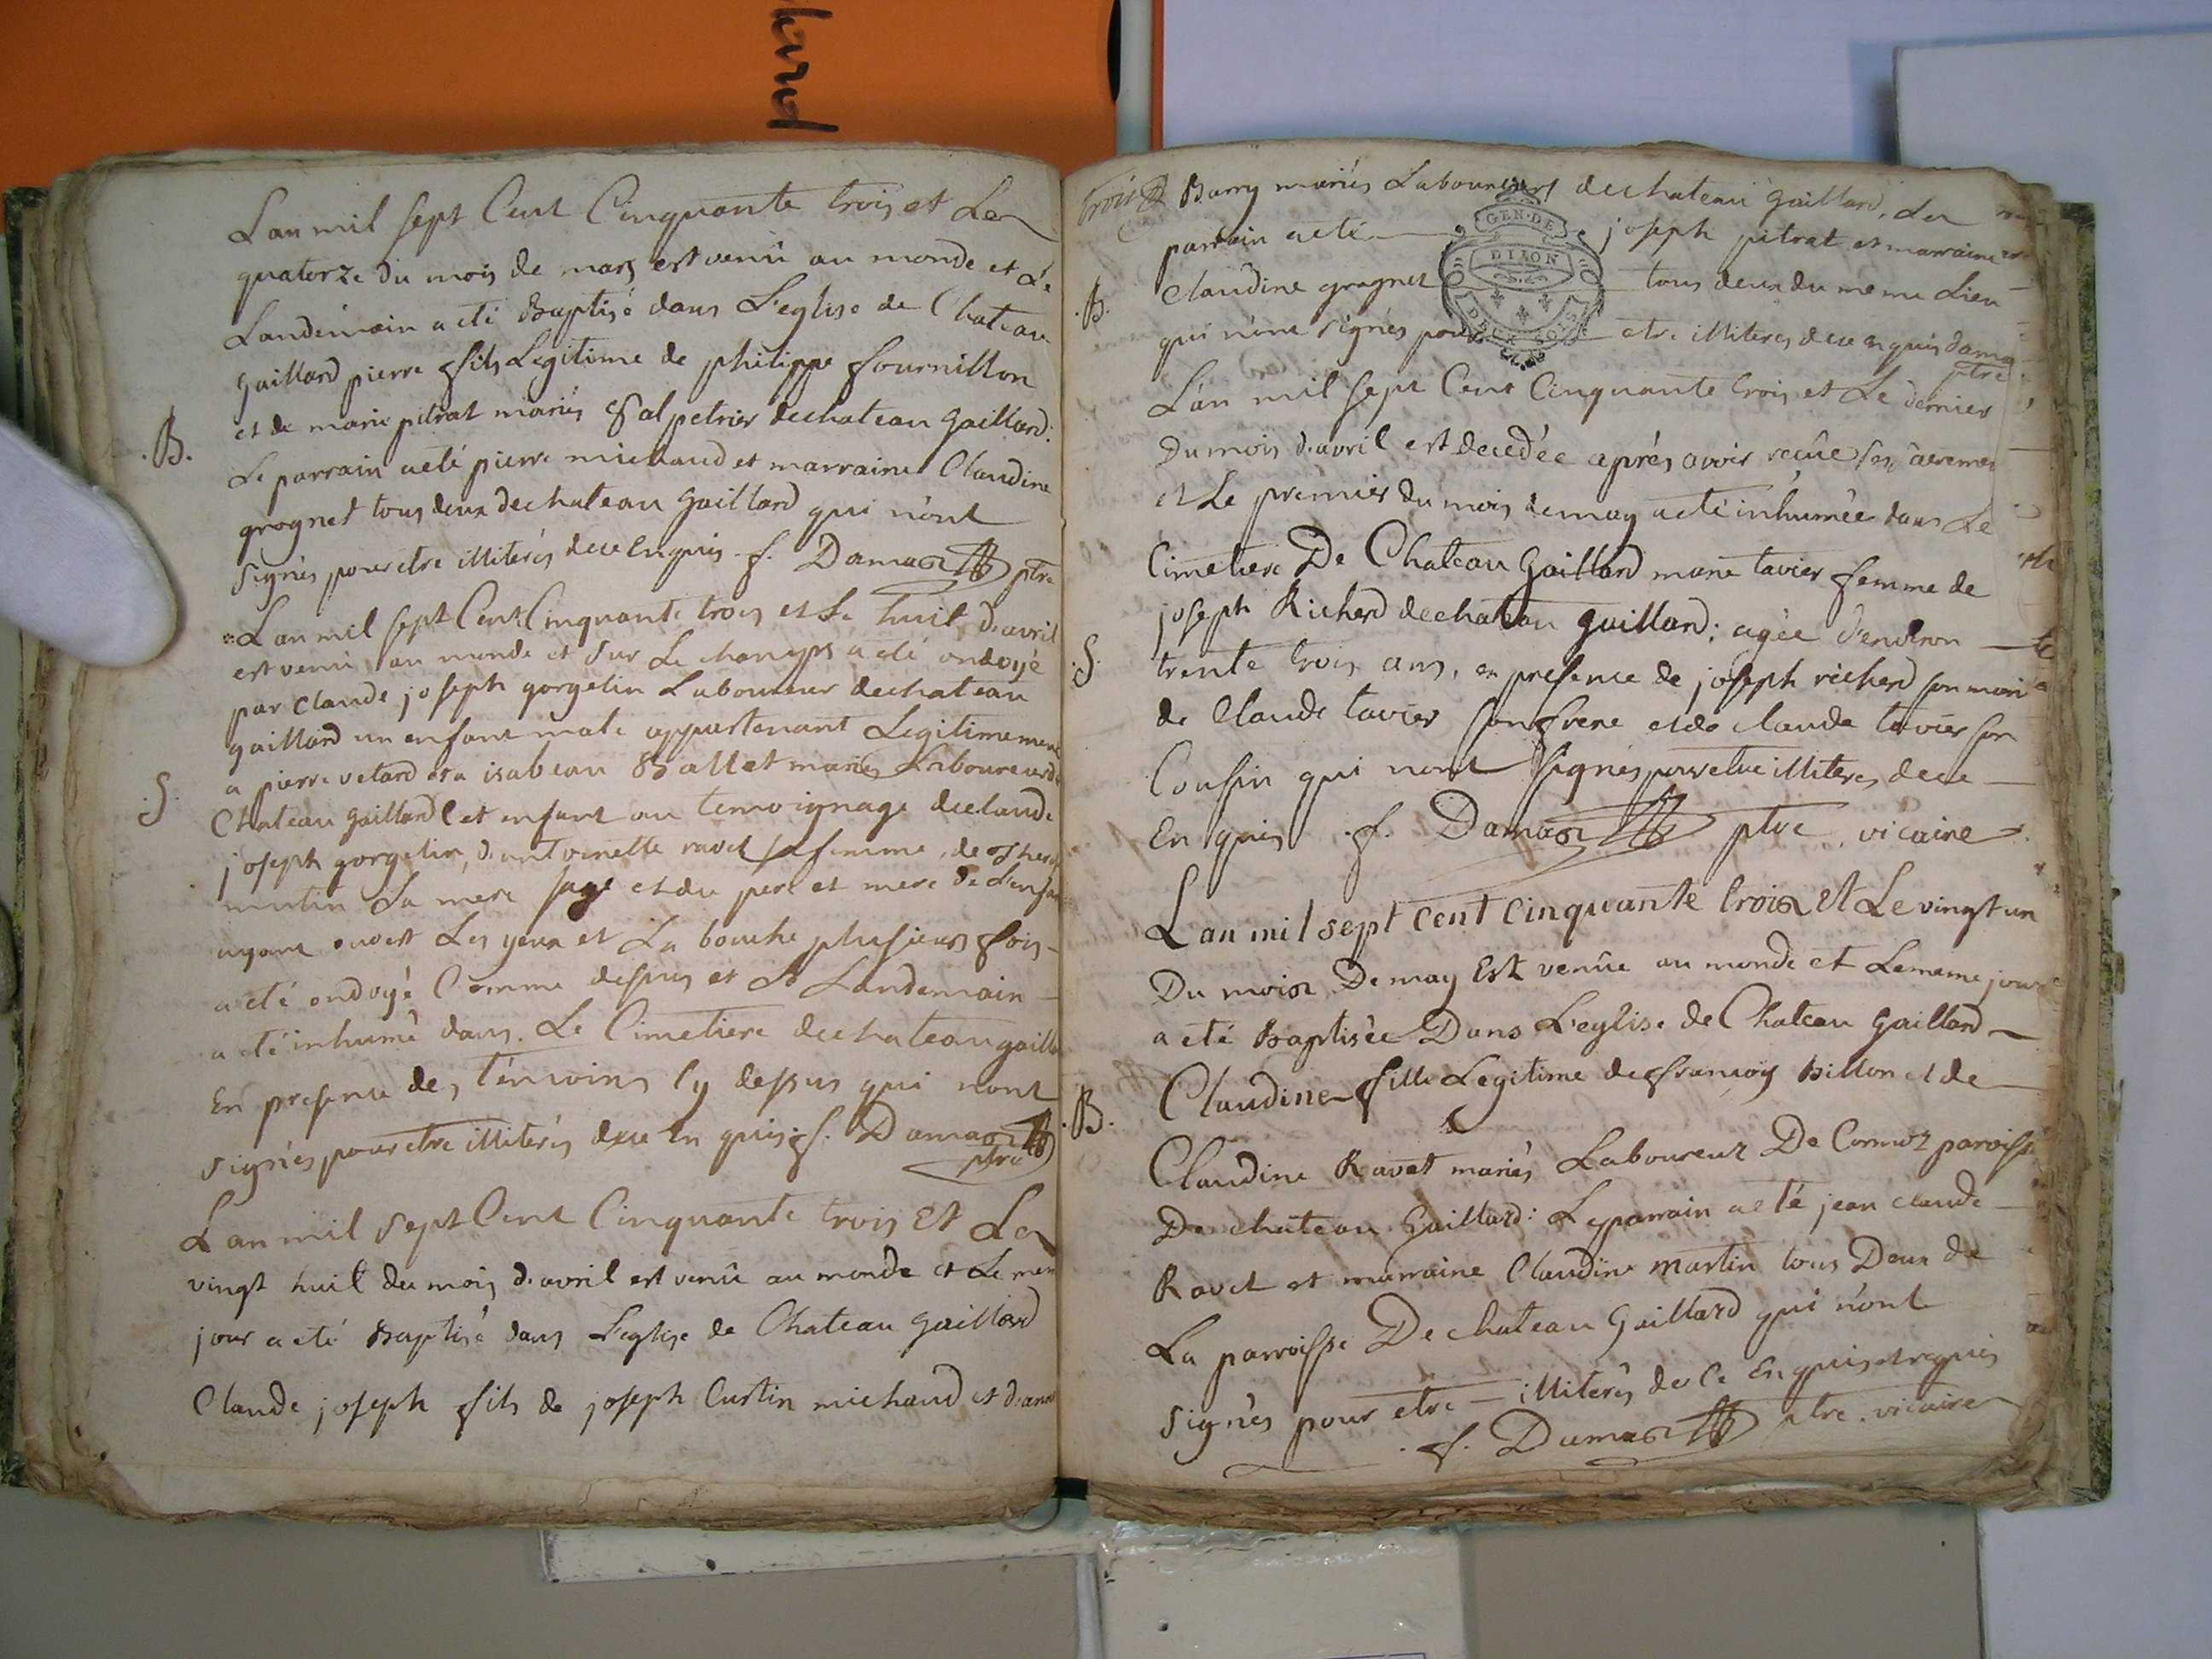 L'an mil sept Cent Cinquante trois et Le
quatorze du mois de mars est venû au monde et Le
Landemain a eté Baptisé dans L'eglise de Chateau
Gaillard pierre fils Legitime de philippe fournillon
et de marie pitrat mariés Salpetrier dechateau Gaillard:
.B.
Le parrain aeté pierre michaud et marraine Claudine
grognet tous deux dechateau Gaillard qui n'ont
signés pour etre illiterés dece Enquis f. Damas ptre
L'an mil sept Cent Cinquante trois et Le huit d'avril
est venu au monde et sur Le champs a eté ondoyé
par Claude joseph gorgelin Laboureur dechateau
gaillard un enfant male appartenant Legitimement
a pierre vetard et a isabeau Ballet mariés Laboureurs de
.S.
Chateau Gaillard Cet enfant au temoignage declaude
joseph gorgelin, d'antoinette ravet sa femme, de
martin La mere sage et du pere et mere de L'enfan
ayant ouvert Les yeux et La bouche plusieurs fois
a eté ondoyé Comme dessus et Le Landemain
a eté inhumé dans Le Cimetiere dechateau gailla
En presence des temoins Cy dessus qui nont
signés pour etre illiterés dece En quis f. Damas
ptre
L'an mil sept Cent Cinquante trois Et Le
vingt huit du mois d'avril est venû au monde et Le mem
jour a eté Baptisé dans L'eglise de Chateau Gaillard
Claude joseph fils de joseph Curtin michaud et d'anne
trois
Barry mariés Laboureurs dechateau Gaillard, Le
parrain aeté joseph pitrat et marraine
GEN. DE
DIJON
DEUX SOLS
.B.
Claudine grognet tous deux du meme Lieu
qui n'ont signés pour etre illiteres dece enquis Damas
ptre
L'an mil sept Cent Cinquante trois et Le dernier
Du mois d'avril est decedée aprés avoir reçûe ses sacremen
et Le premier du mois de may a eté inhumée dans Le
Cimetiere De Chateau Gaillard marie tavier femme de
joseph Richerd dechateau Gaillard; agée d'environ
.S.
trente trois ans, en presence de joseph richerd son mari
de Claude tavier son frere et de claude tavier son
Cousin qui nont signés pour etre illiteres dece
En quis f. Damas ptre vicaire
L'an mil sept cent cinquante trois Et Le vingt un
Du mois De may Est venûe au monde et Lememe jour
a eté Baptisée Dans L'eglise de Chateau Gaillard
.B.
Claudine fille Legitime de françois Billon et de
Claudine Ravet mariés Laboureur De Cormoz paroisse
De chateau Gaillard: Le parrain a eté jean claude
Ravet et marraine Claudine martin tous Deux de
La parroisse De chateau Gaillard qui n'ont
signés pour etre illiterés de Ce Enquis et requis
f. Damas ptre. vicaire